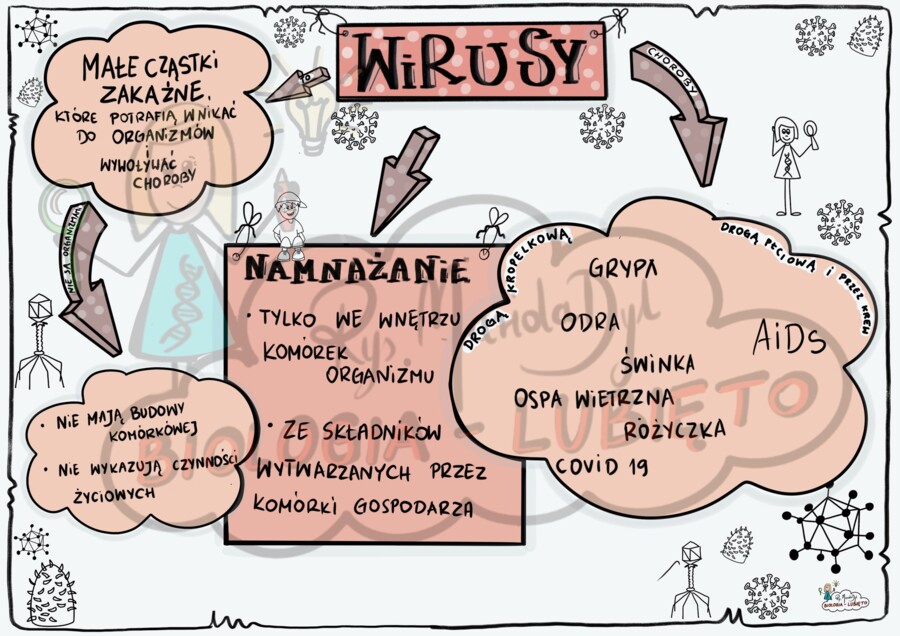 WiRUSY
MAŁE CZĄSTKI
ZAKAŹNE,
KTÓRE POTRAFIĄ WNIKAĆ
DO ORGANIZMÓW
I
WYWOŁYWAĆ
CHOROBY
CHOROBY
NIE SĄ ORGANIZMAMI
• NIE MAJĄ BUDOWY
KOMÓRKOWEJ
• NIE WYKAZUJĄ CZYNNOŚCI
ŻYCIOWYCH
NAMNAŻANiE
• TYLKO WE WNĘTRZU
KOMÓREK
ORGANIZMU
• ZE SKŁADNIKÓW
WYTWARZANYCH PRZEZ
KOMÓRKI GOSPODARZA
DROGĄ KROPELKOWĄ
GRYPA
ODRA
ŚWINKA
OSPA WIETRZNA
RÓŻYCZKA
COVID 19
DROGĄ PŁCIOWĄ i PRZEZ KREW
AiDS
BIOLOGIA - LUBIĘTO
BIOLOGIA - LUBIĘTO